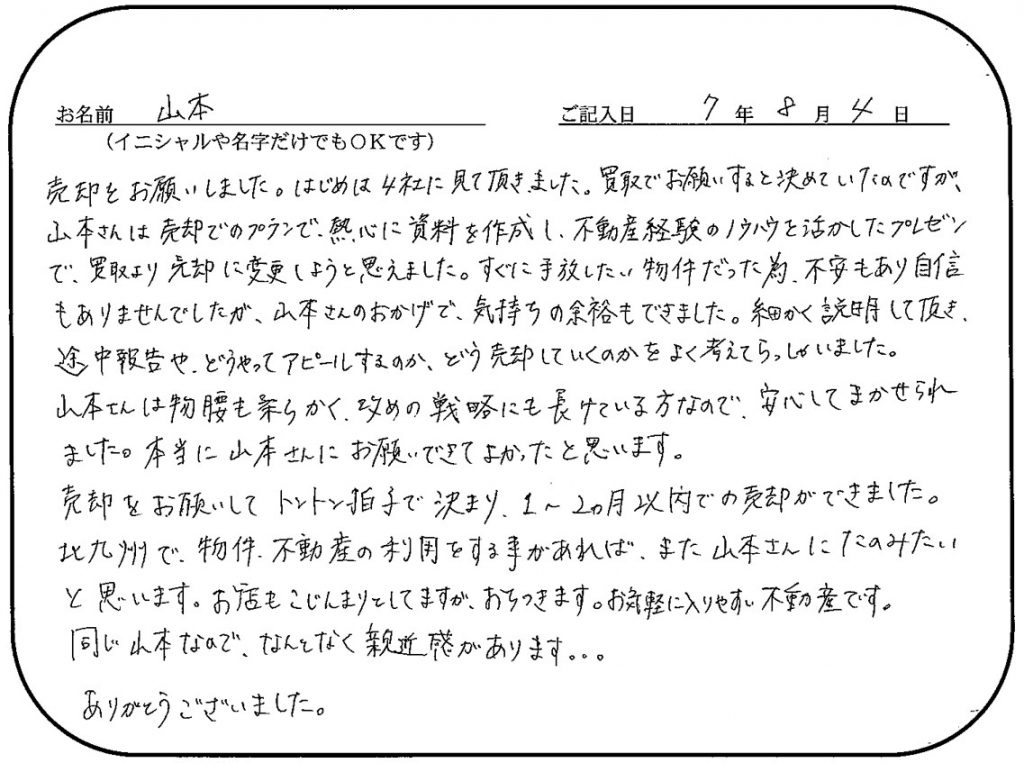 お名前 山本 ご記入日 7 年 8 月 4 日
(イニシャルや名字だけでもOKです)
売却をお願いしました。はじめは4社に見て頂きました。買取でお願いすると決めていたのですが、
山本さんは売却でのプランで、熱心に資料を作成し、不動産経験のノウハウを活かしたプレゼン
で、買取より売却に変更しようと思えました。すぐに手放したい物件だった為、不安もあり自信
もありませんでしたが、山本さんのおかげで、気持ちの余裕もできました。細かく説明して頂き、
途中報告や、どうやってアピールするのか、どう売却していくのかをよく考えてらっしゃいました。
山本さんは物腰も柔らかく、攻めの戦略にも長けている方なので、安心してまかせられ
ました。本当に山本さんにお願いできてよかったと思います。
売却をお願いしてトントン拍子で決まり、1~2ヵ月以内での売却ができました。
北九州で、物件、不動産の利用をする事があれば、また山本さんにたのみたい
と思います。お店もこじんまりとしてますが、おちつきます。お気軽に入りやすい不動産です。
同じ山本なので、なんとなく親近感があります...
ありがとうございました。